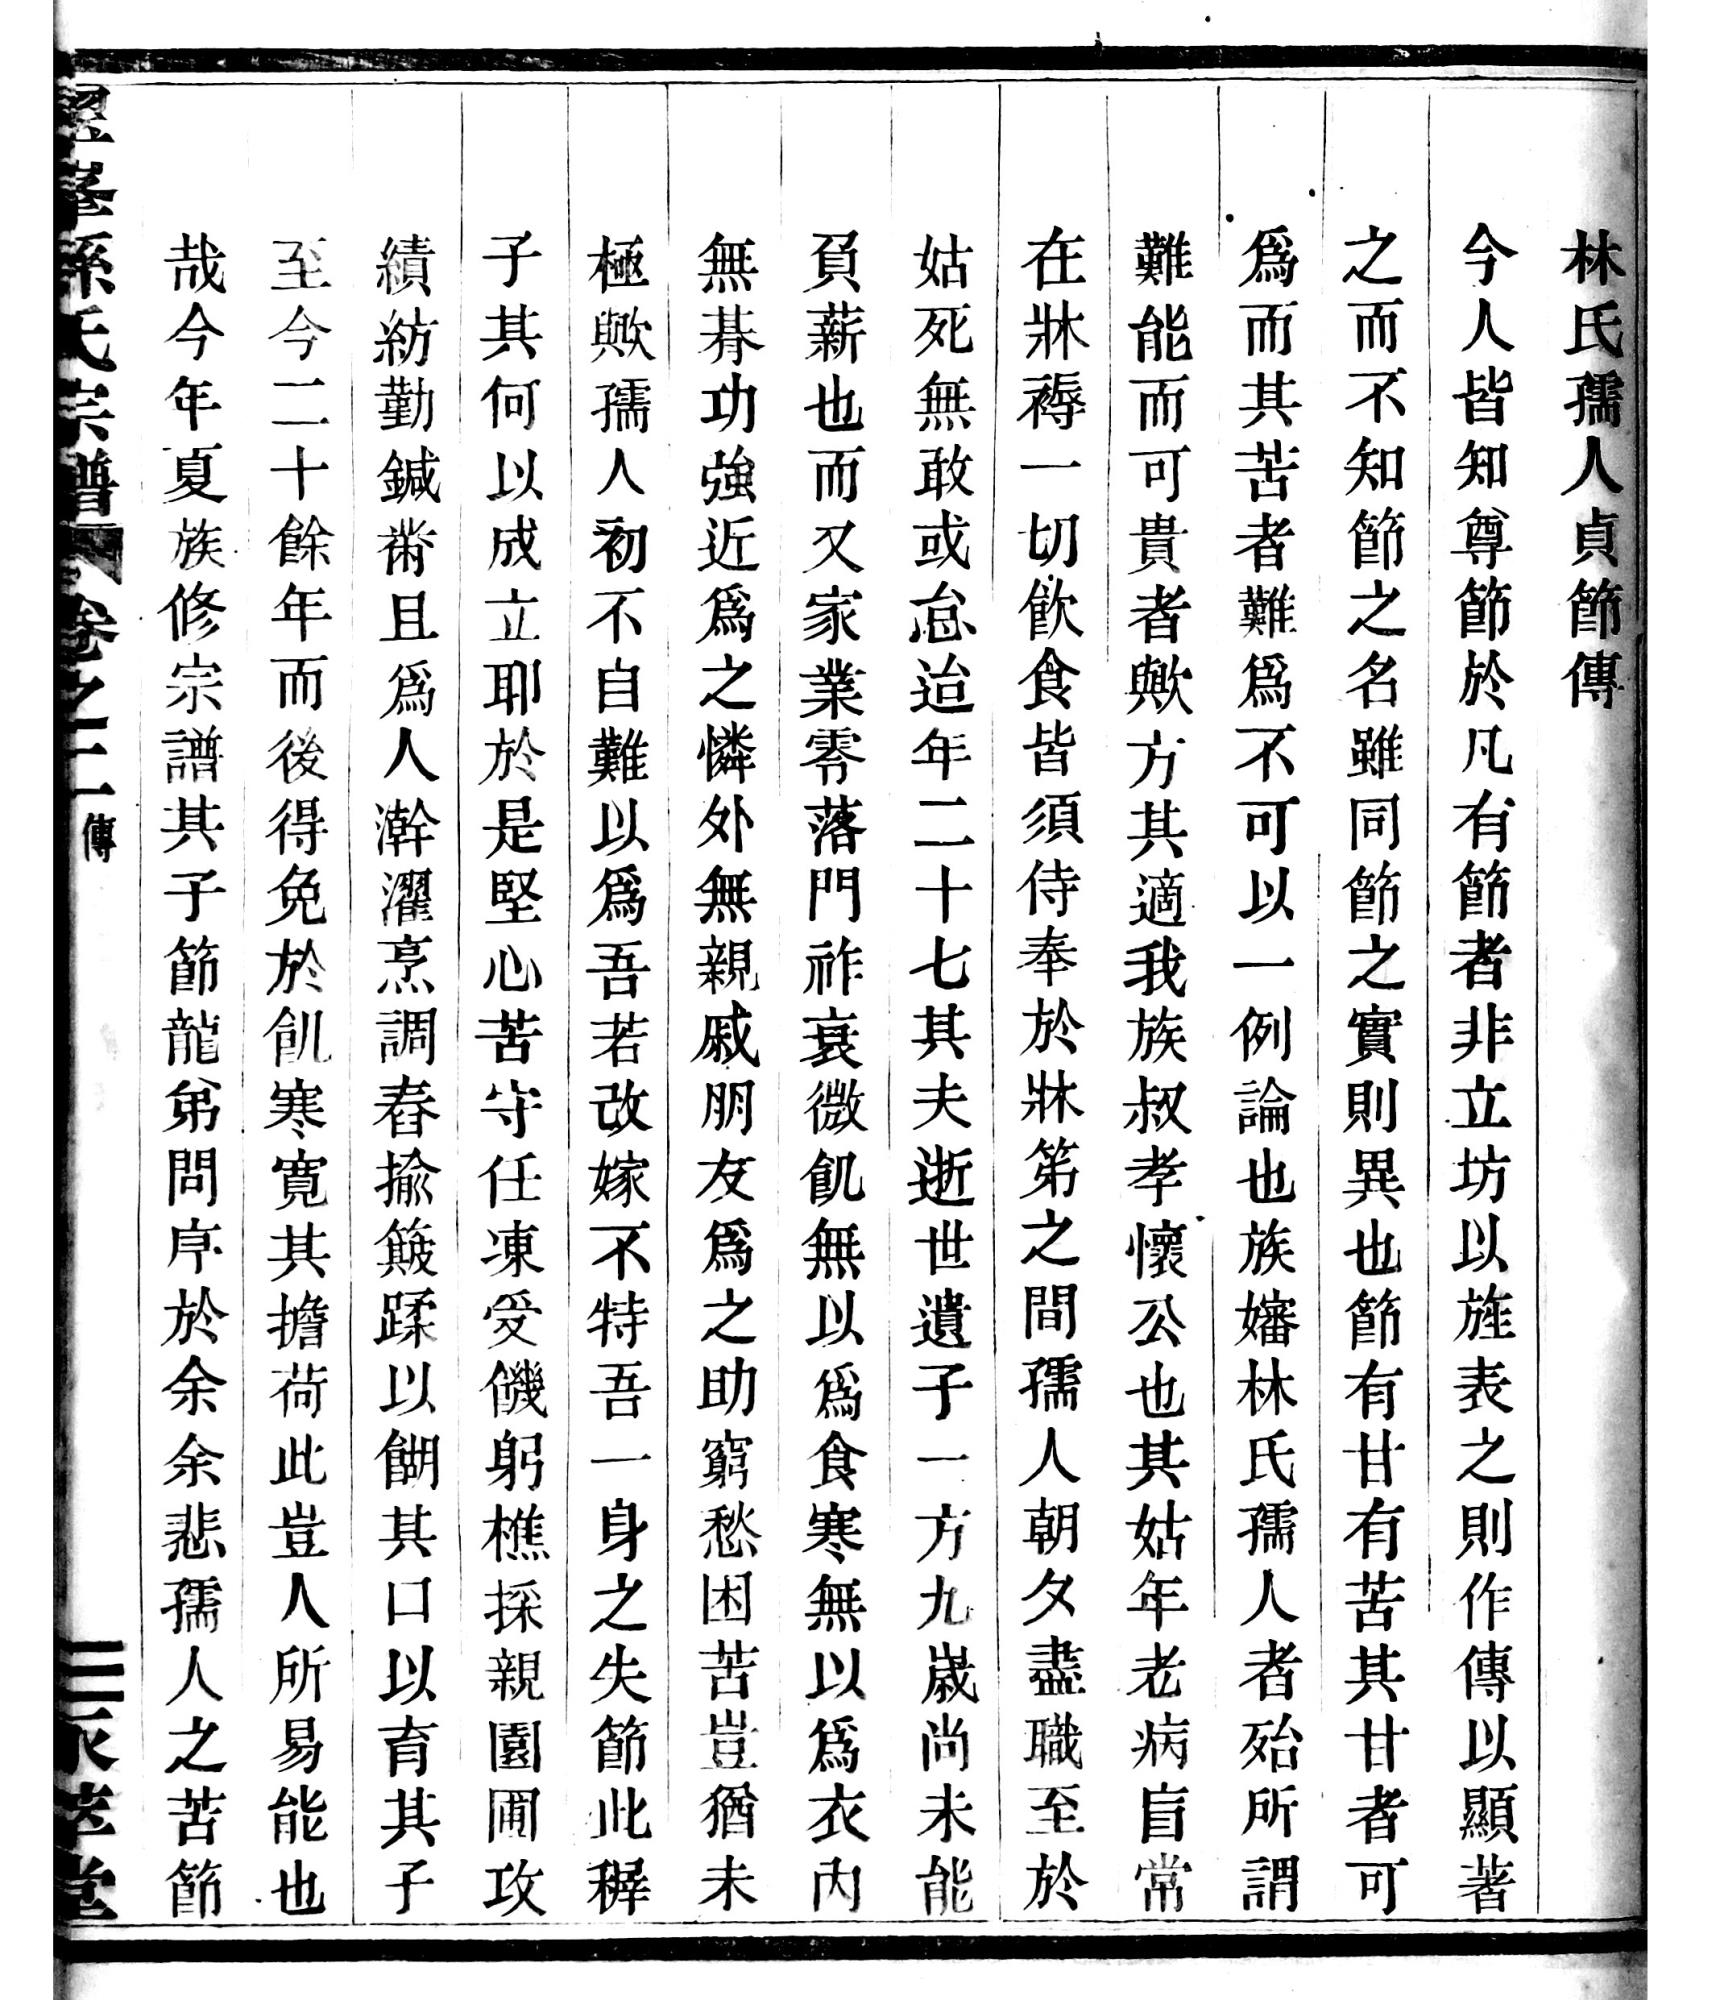 林氏孺人貞節傳
今人皆知尊節於凡有節者非立坊以旌表之則作傳以顯著
之而不知節之名雖同節之實則異也節有甘有苦其甘者可
爲而其苦者難爲不可以一例論也族嬸林氏孺人者殆所謂
難能而可貴者歟方其適我族叔孝懷公也其姑年老病盲常
在牀褥一切飲食皆須侍奉於牀笫之間孺人朝夕盡職至於
姑死無敢或怠迨年二十七其夫逝世遺子一方九歲尚未能
負薪也而又家業零落門祚衰微飢無以爲食寒無以爲衣內
無朞功強近爲之憐外無親戚朋友爲之助窮愁困苦豈猶未
極歟孺人初不自難以爲吾若改嫁不特吾一身之失節此穉
子其何以成立耶於是堅心苦守任凍受饑躬樵採親園圃攻
績紡勤鍼黹且爲人澣濯烹調舂揄簸蹂以餬其口以育其子
至今二十餘年而後得免於飢寒寬其擔荷此豈人所易能也
哉今年夏族修宗譜其子節龍弟問序於余余悲孺人之苦節
孫氏宗譜 卷之二 傳 三 萃堂